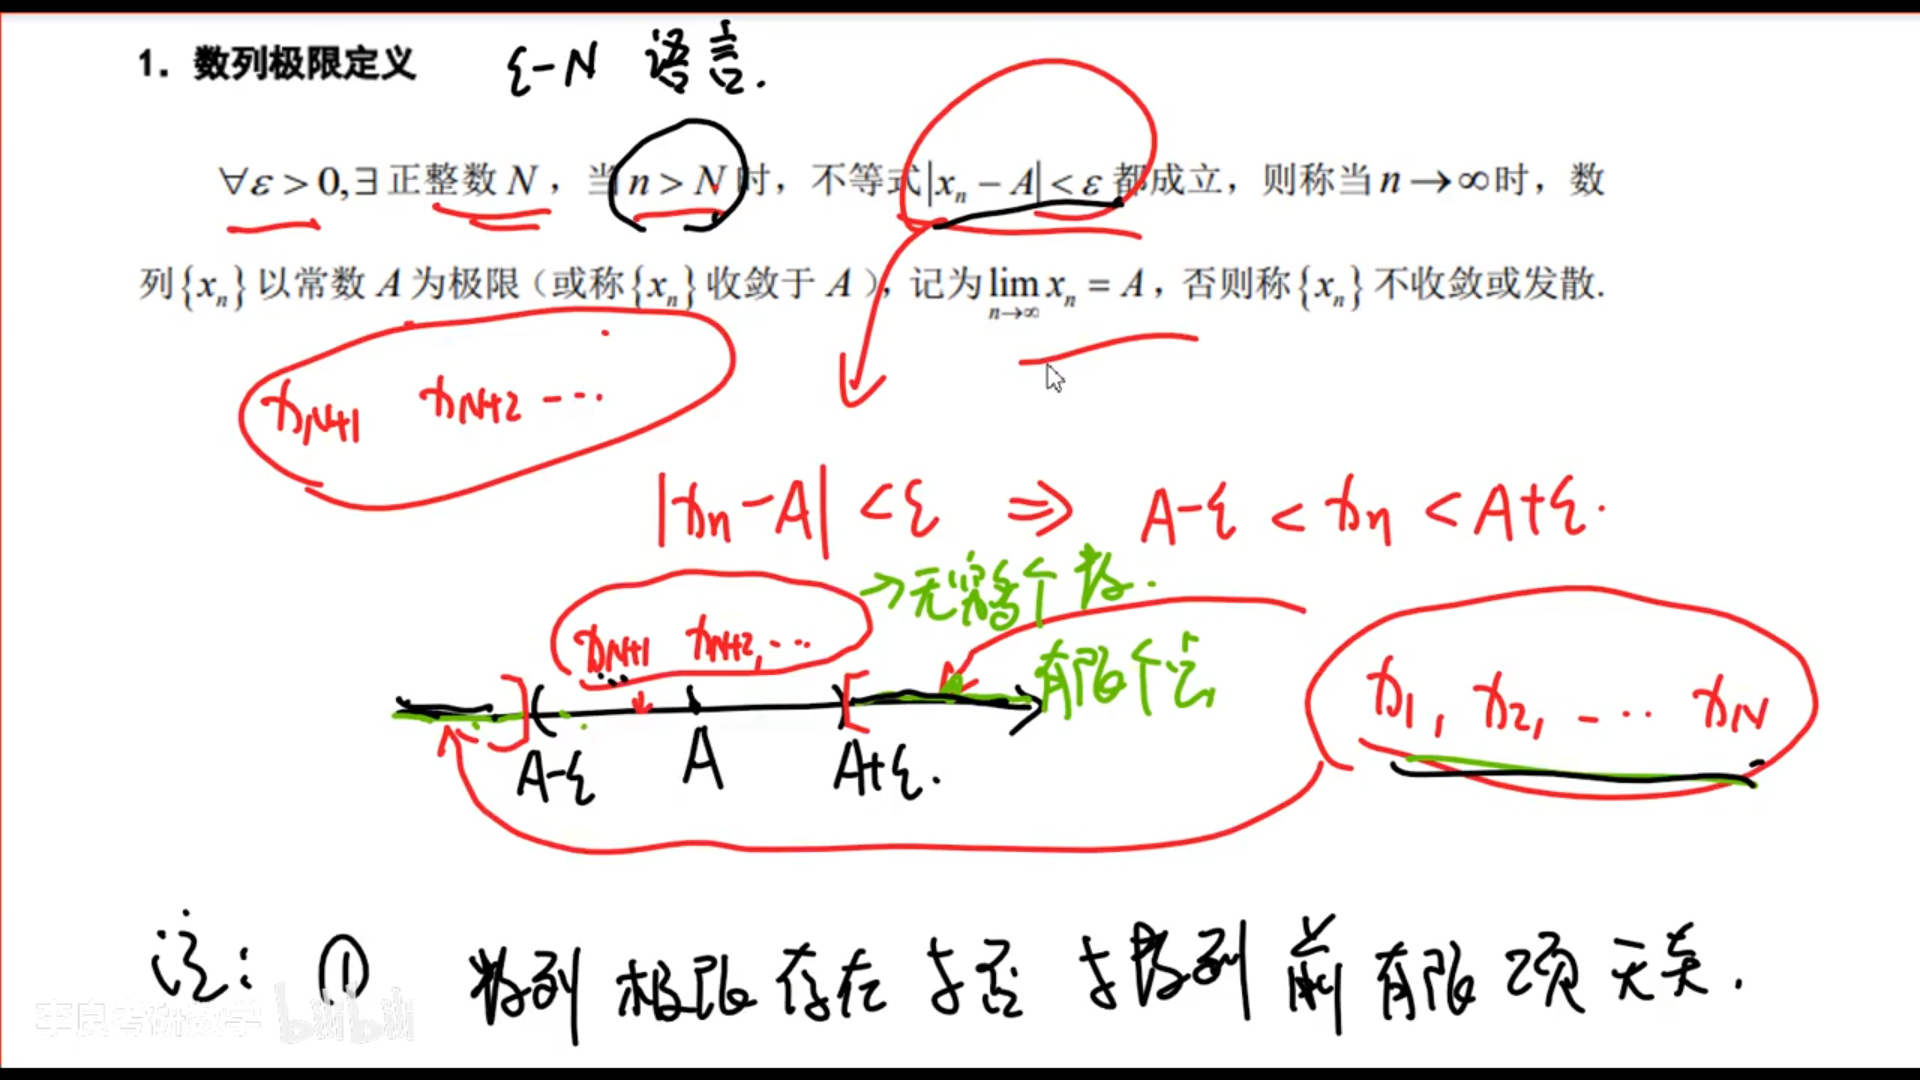 1. 数列极限定义 ε-N 语言.
∀ε > 0, ∃ 正整数 N，当 n > N 时，不等式 |xₙ − A| < ε 都成立，则称当 n → ∞ 时，数
列{xₙ}以常数 A 为极限（或称{xₙ}收敛于 A），记为 lim xₙ = A，否则称{xₙ}不收敛或发散.
n→∞
x_{N+1} x_{N+2} ...
|xₙ − A| < ε ⇒ A−ε < xₙ < A+ε.
→无穷多个 数.
x_{N+1} x_{N+2}, ...
有限个点
x₁, x₂, ... x_N
A−ε A A+ε.
注: ① 数列 极限 存在 与否 与数列 前 有限 项 无关.
李良考研数学 bilibili